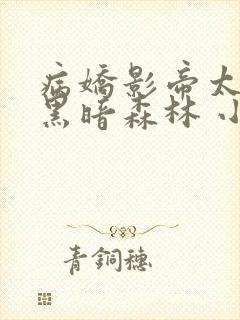 病嬌影帝太
黑暗森林 小
青銅穗